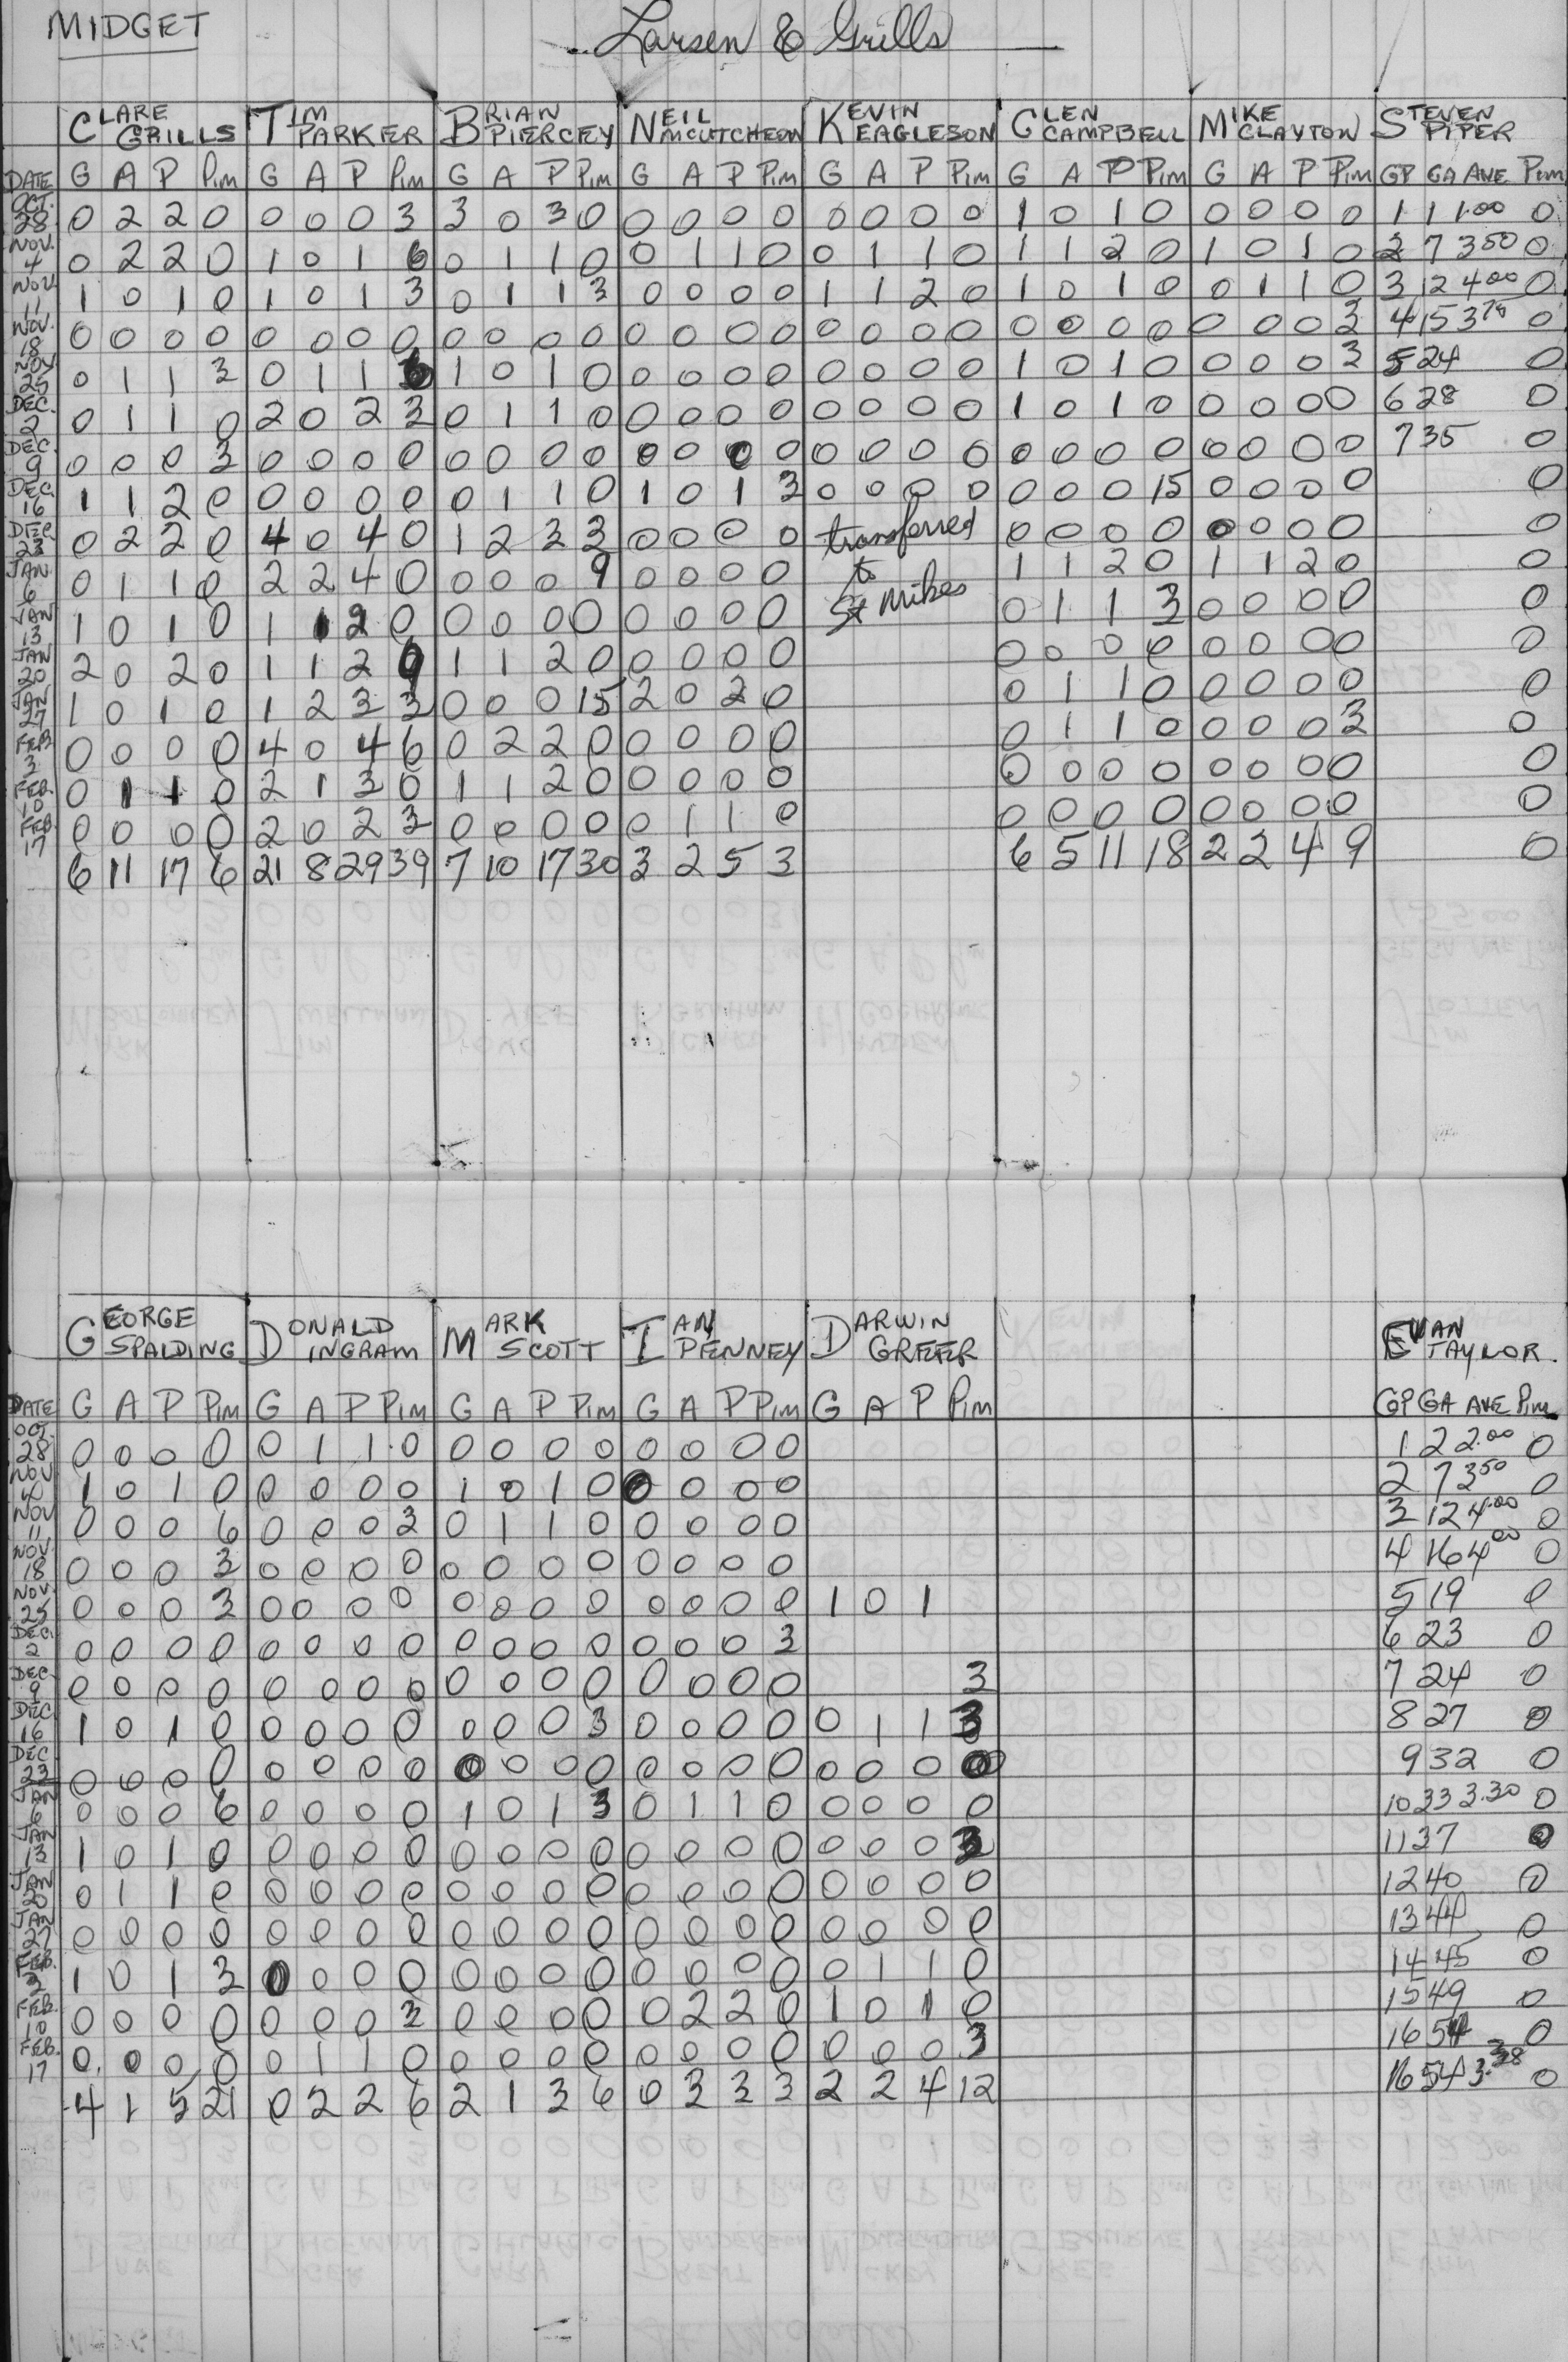 MIDGET
Larsen & Grills
CLARE GRILLS TIM PARKER BRIAN PIERCEY NEIL MCCUTCHEON KEVIN EAGLESON GLEN CAMPBELL MIKE CLAYTON STEVEN PIPER
DATE G A P Pim G A P Pim G A P Pim G A P Pim G A P Pim G A P Pim G A P Pim GP GA AVE Pim
OCT. 28 0 2 2 0 0 0 0 3 3 0 3 0 0 0 0 0 0 0 0 0 1 0 1 0 0 0 0 0 1 1 1.00 0
NOV. 4 0 2 2 0 1 0 1 6 0 1 1 0 0 1 1 0 0 1 1 0 1 1 2 0 1 0 1 0 2 7 3.50 0
NOV. 11 1 0 1 0 1 0 1 3 0 1 1 3 0 0 0 0 1 1 2 0 1 0 1 0 0 1 1 0 3 12 4.00 0
NOV. 18 0 0 0 0 0 0 0 0 0 0 0 0 0 0 0 0 0 0 0 0 0 0 0 0 0 0 0 3 4 15 3.75 0
NOV 25 0 1 1 3 0 1 1 1 0 1 0 0 0 0 0 0 0 0 0 1 0 1 0 0 0 0 3 5 24 0
DEC. 2 0 1 1 0 2 0 2 3 0 1 1 0 0 0 0 0 0 0 0 0 1 0 1 0 0 0 0 0 6 28 0
DEC. 9 0 0 0 3 0 0 0 0 0 0 0 0 0 0 0 0 0 0 0 0 0 0 0 0 0 0 0 0 7 35 0
DEC. 16 1 1 2 0 0 0 0 0 0 1 1 0 1 0 1 3 0 0 0 0 0 0 0 15 0 0 0 0 0
DEC. 23 0 2 2 0 4 0 4 0 1 2 3 3 0 0 0 0 transferred 0 0 0 0 0 0 0 0 0
JAN. 6 0 1 1 0 2 2 4 0 0 0 0 9 0 0 0 0 to 1 1 2 0 1 1 2 0 0
JAN 13 1 0 1 0 1 1 2 0 0 0 0 0 0 0 0 0 St Mikes 0 1 1 3 0 0 0 0 0
JAN 20 2 0 2 0 1 1 2 9 1 1 2 0 0 0 0 0 0 0 0 0 0 0 0 0 0
JAN 27 1 0 1 0 1 2 3 3 0 0 0 15 2 0 2 0 0 1 1 0 0 0 0 0 0
FEB 3 0 0 0 0 4 0 4 6 0 2 2 0 0 0 0 0 0 1 1 0 0 0 0 3 0
FEB. 10 0 1 1 0 2 1 3 0 1 1 2 0 0 0 0 0 0 0 0 0 0 0 0 0 0
FEB. 17 0 0 0 0 2 0 2 3 0 0 0 0 0 1 1 0 0 0 0 0 0 0 0 0 0
6 11 17 6 21 8 29 39 7 10 17 30 3 2 5 3 6 5 11 18 2 2 4 9 0
GEORGE SPALDING DONALD INGRAM MARK SCOTT IAN PENNEY DARWIN GREER EVAN TAYLOR
DATE G A P Pim G A P Pim G A P Pim G A P Pim G A P Pim GP GA AVE Pim
OCT. 28 0 0 0 0 0 1 1 0 0 0 0 0 0 0 0 0 1 2 2.00 0
NOV 4 1 0 1 0 0 0 0 0 1 0 1 0 0 0 0 0 2 7 3.50 0
NOV 11 0 0 0 6 0 0 0 3 0 1 1 0 0 0 0 0 3 12 4.00 0
NOV. 18 0 0 0 3 0 0 0 0 0 0 0 0 0 0 0 0 4 16 4.00 0
NOV. 25 0 0 0 3 0 0 0 0 0 0 0 0 0 0 0 0 1 0 1 5 19 0
DEC. 2 0 0 0 0 0 0 0 0 0 0 0 0 0 0 0 3 6 23 0
DEC 9 0 0 0 0 0 0 0 0 0 0 0 0 0 0 0 0 3 7 24 0
DEC. 16 1 0 1 0 0 0 0 0 0 0 0 3 0 0 0 0 0 1 1 3 8 27 0
DEC 23 0 0 0 0 0 0 0 0 0 0 0 0 0 0 0 0 0 0 0 0 9 32 0
JAN 6 0 0 0 6 0 0 0 0 1 0 1 3 0 1 1 0 0 0 0 0 10 33 3.30 0
JAN 13 1 0 1 0 0 0 0 0 0 0 0 0 0 0 0 0 0 0 0 3 11 37 0
JAN 20 0 1 1 0 0 0 0 0 0 0 0 0 0 0 0 0 0 0 0 0 12 40 0
JAN 27 0 0 0 0 0 0 0 0 0 0 0 0 0 0 0 0 0 0 0 0 13 44 0
FEB. 3 1 0 1 3 0 0 0 0 0 0 0 0 0 0 0 0 0 1 1 0 14 45 0
FEB. 10 0 0 0 0 0 0 0 3 0 0 0 0 0 2 2 0 1 0 1 0 15 49 0
FEB. 17 0 0 0 0 0 1 1 0 0 0 0 0 0 0 0 0 0 0 0 3 16 54 0
4 1 5 21 0 2 2 6 2 1 3 6 0 3 3 3 2 2 4 12 16 54 3.38 0